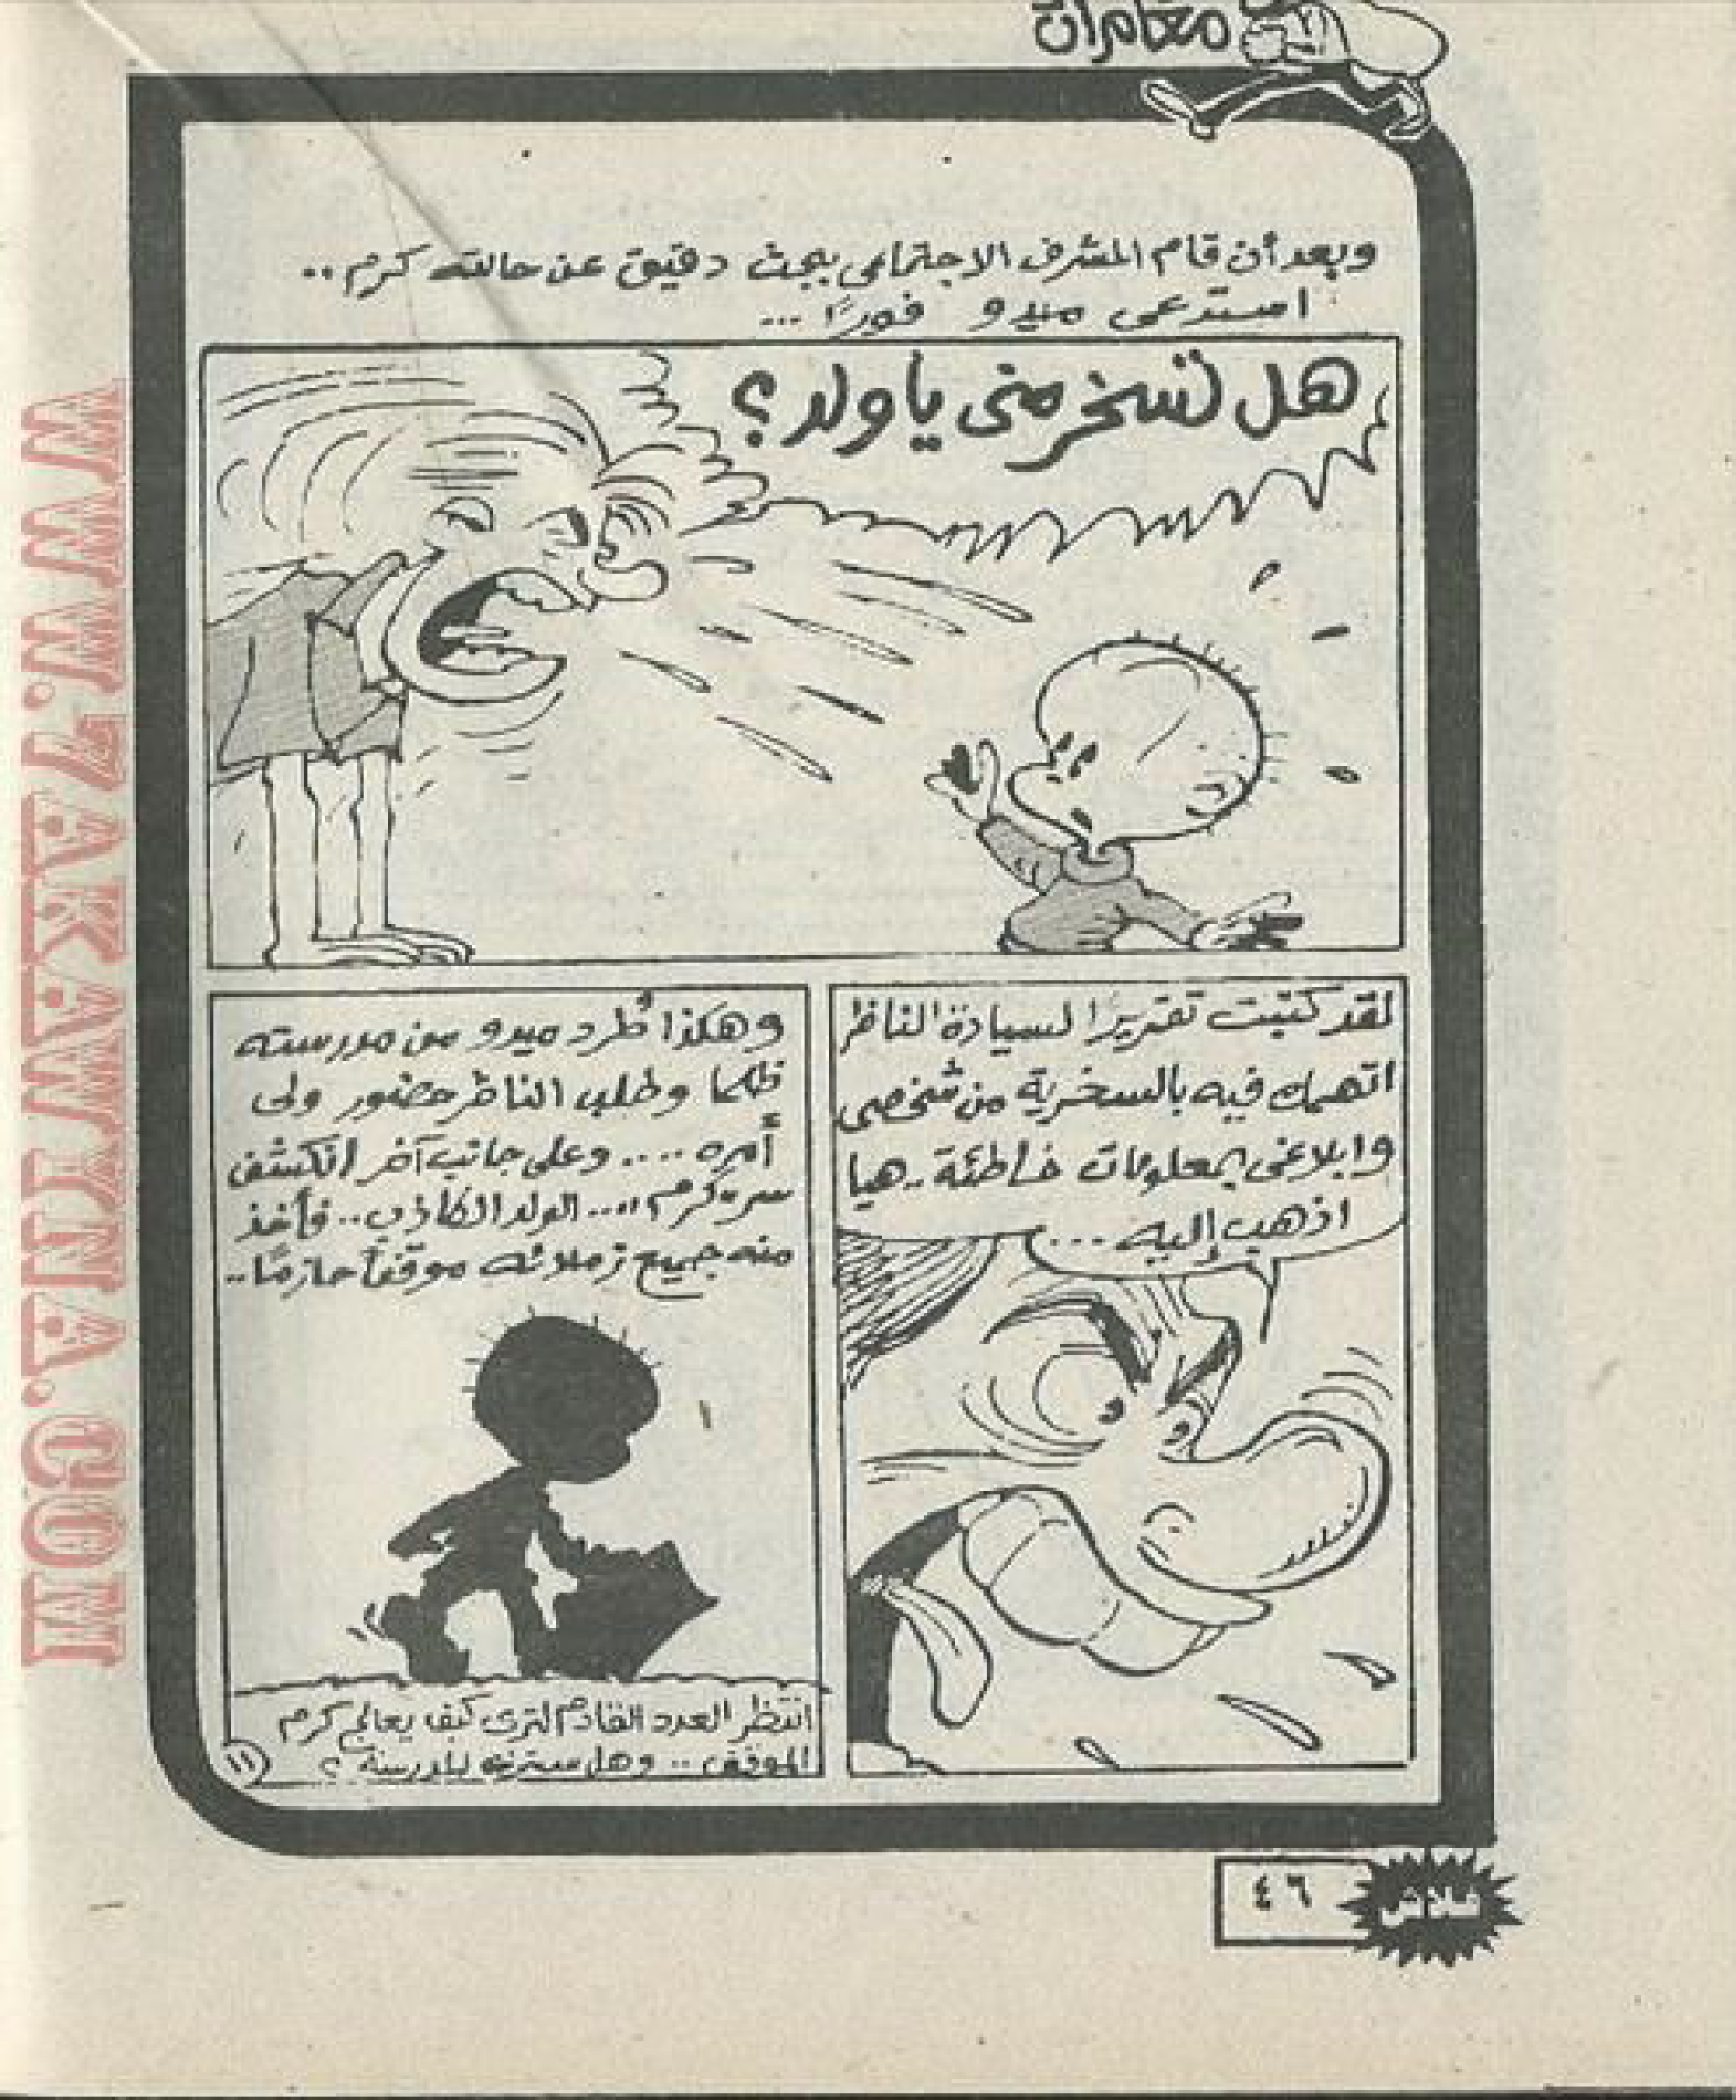 مغامرات
وبعد أن قام المشرف الاجتماعى ببحث دقيق عن حالة كرم ..
استدعى ميدو فورًا ...
هل تسخر منى يا ولد ؟
لقد كتبت تقريرا لسيادة الناظر
اتهمك فيه بالسخرية من شخصى
وابلاغى بمعلومات خاطئة .. هيا
اذهب إليه ...
وهكذا طُرد ميدو من مدرسته
ظلما وطلب الناظر حضور ولى
أمره .... وعلى جانب آخر انكشف
سر "كرم" ... الولد الكاذب .. فأخذ
منه جميع زملائه موقفاً حازمًا ..
انتظر العدد القادم لترى كيف يعالج كرم
الموقف .. وهل للمدرسة ؟
١١
٤٦
فلاش
WWW.7AKAWATINA.COM